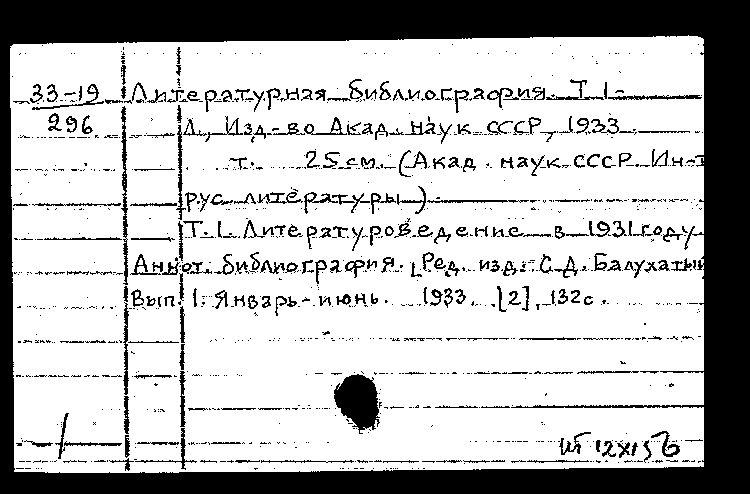 33-19 Литературная библиография. Т 1-
296 Л., Изд-во Акад. наук СССР, 1933.
т. 25 см. (Акад. наук СССР. Ин-т
рус. литературы).
Т. 1. Литературоведение в 1931 году
Аннот. библиография. [Ред. изд: С.Д. Балухатый
Вып. 1. Январь-июнь. 1933. [2], 132с.